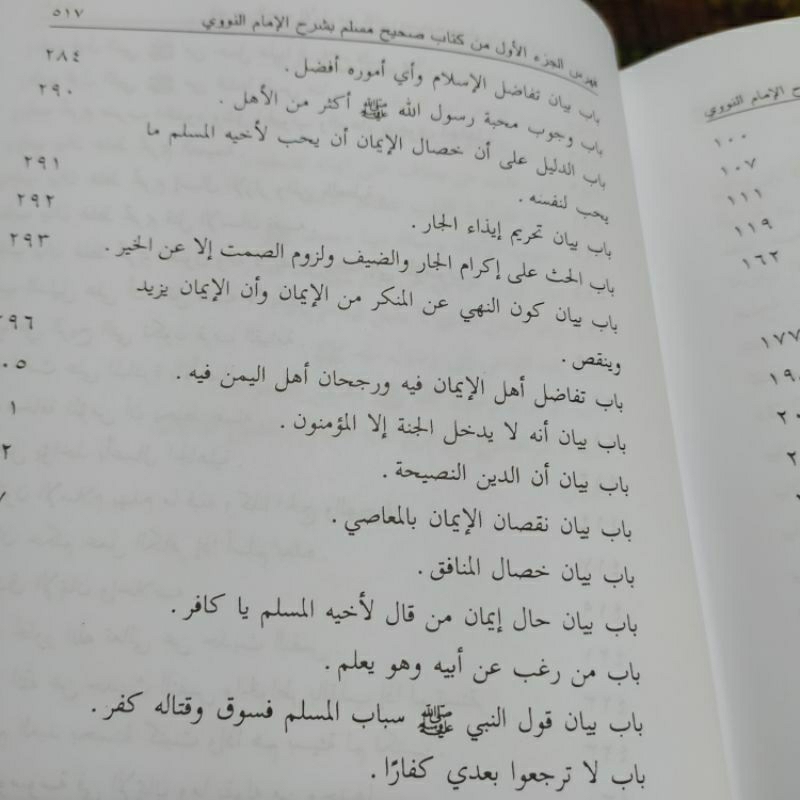 فهرس الجزء الأول من كتاب صحيح مسلم بشرح الإمام النووي ٥١٧
باب بيان تفاضل الإسلام وأي أموره أفضل . ٢٨٤
باب وجوب محبة رسول الله ﷺ أكثر من الأهل . ٢٩٠
باب الدليل على أن خصال الإيمان أن يحب لأخيه المسلم ما
يحب لنفسه . ٢٩١
باب بيان تحريم إيذاء الجار . ٢٩٢
باب الحث على إكرام الجار والضيف ولزوم الصمت إلا عن الخير . ٢٩٣
باب بيان كون النهي عن المنكر من الإيمان وأن الإيمان يزيد
وينقص . ٢٩٦
باب تفاضل أهل الإيمان فيه ورجحان أهل اليمن فيه .
باب بيان أنه لا يدخل الجنة إلا المؤمنون .
باب بيان أن الدين النصيحة .
باب بيان نقصان الإيمان بالمعاصي .
باب بيان خصال المنافق .
باب بيان حال إيمان من قال لأخيه المسلم يا كافر .
باب من رغب عن أبيه وهو يعلم .
باب بيان قول النبي ﷺ سباب المسلم فسوق وقتاله كفر .
باب لا ترجعوا بعدي كفارًا .
الإمام النووي
١٠٠
١٠٧
١١١
١١٩
١٦٢
١٧٧